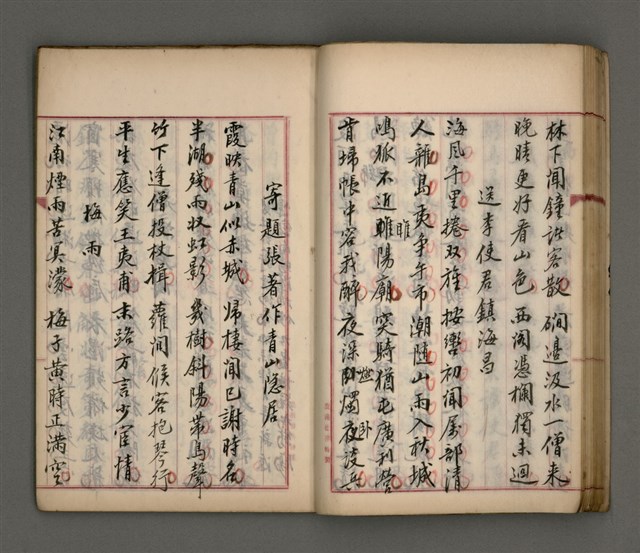 林下聞鐘訪客散 磵邊汲水一僧來
晚晴更好看山色 西閣憑欄獨未迴
送李使君鎮海昌
海風千里捲双旌 按轡初聞屬部清
人離島夷爭午市 潮随山雨入秋城
鳴狐不近睢陽廟 突騎猶屯廣利營
睢
肯埽帳中容我醉 夜深卧燭夜談兵
卧
寄題張著作青山隐居
霞映青山似赤城 歸棲聞已謝時名
半湖殘雨收虹影 幾樹斜陽帯鳥聲
竹下逢僧投杖揖 蘿間候客抱琴行
平生應笑王夷甫 末路方言少宦情
梅雨
江南煙雨苦冥濛 梅子黄時正满空